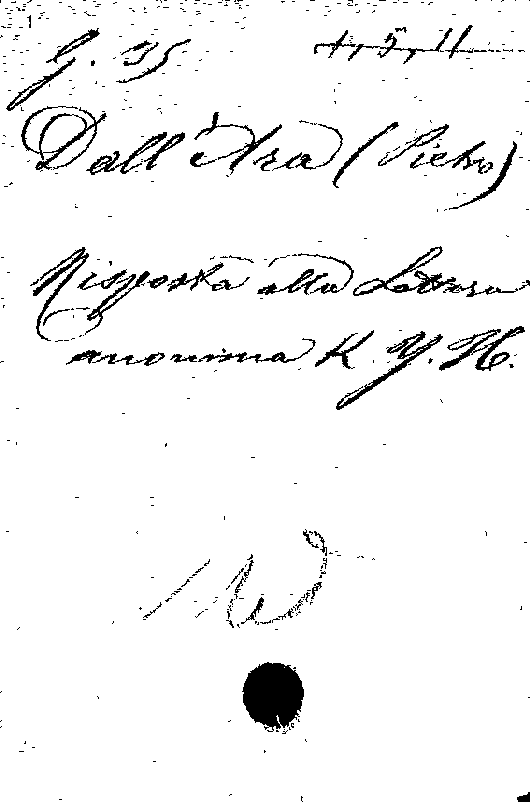 G. 35 1, 5, 11
Dall'Ara (Pietro)
Risposta alla Lettera
anonima K. Y. H.